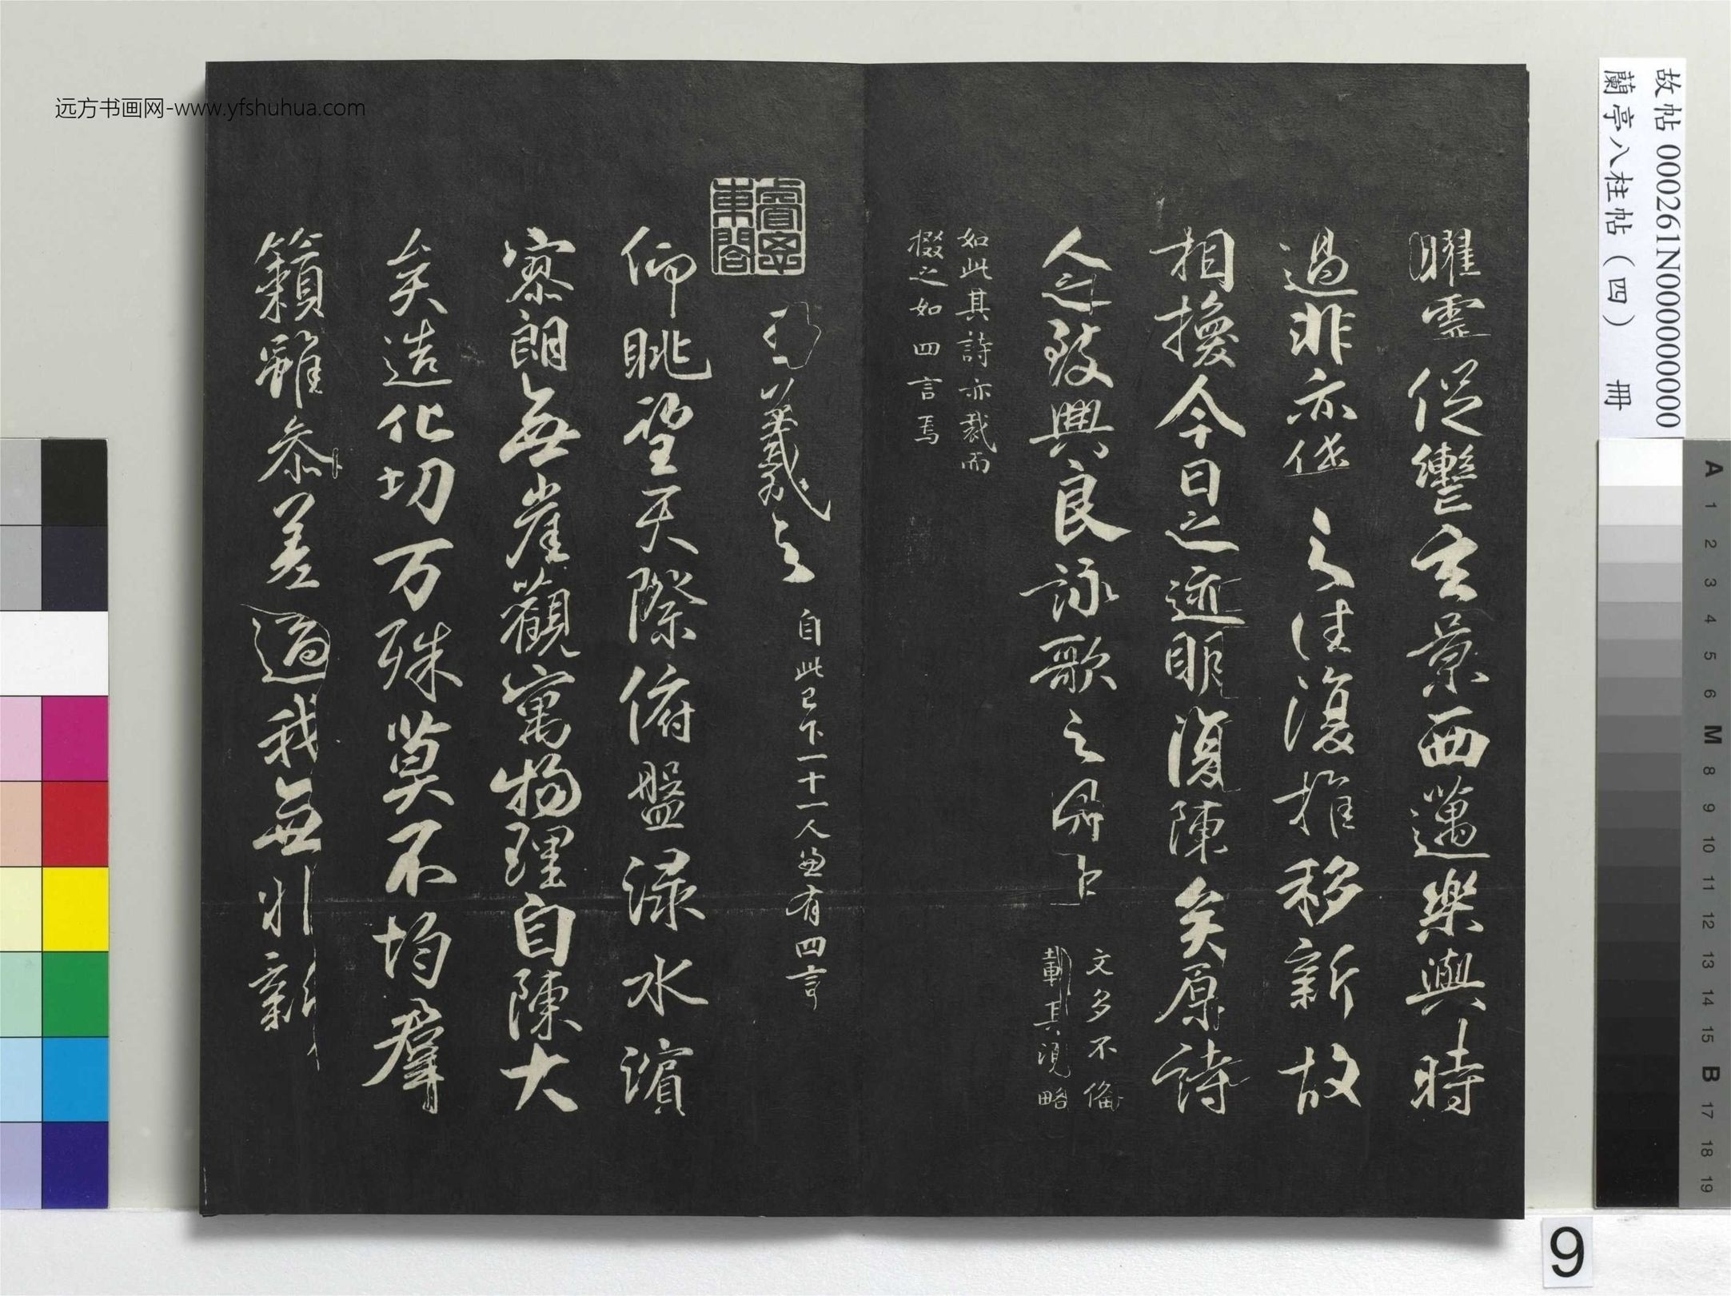 曜靈促轡玄景西邁樂與時
過悲亦係之往復推移新故
相換今日之迹明復陳矣原詩
人之致興良詠歌之有由
文多不備
載其大略
如此其詩亦裁而
掇之如四言焉
王羲之
自此已下一十一人兼有四言
仰眺望天際俯盤淥水濱
寥朗無崖觀寓物理自陳大
矣造化功万殊莫不均群
籟雖參差適我無非新
故帖 000261N000000000
蘭亭八柱帖(四) 冊
远方书画网-www.yfshuhua.com
A
1
2
3
4
5
6
M
8
9
10
11
12
13
14
15
B
17
18
19
9